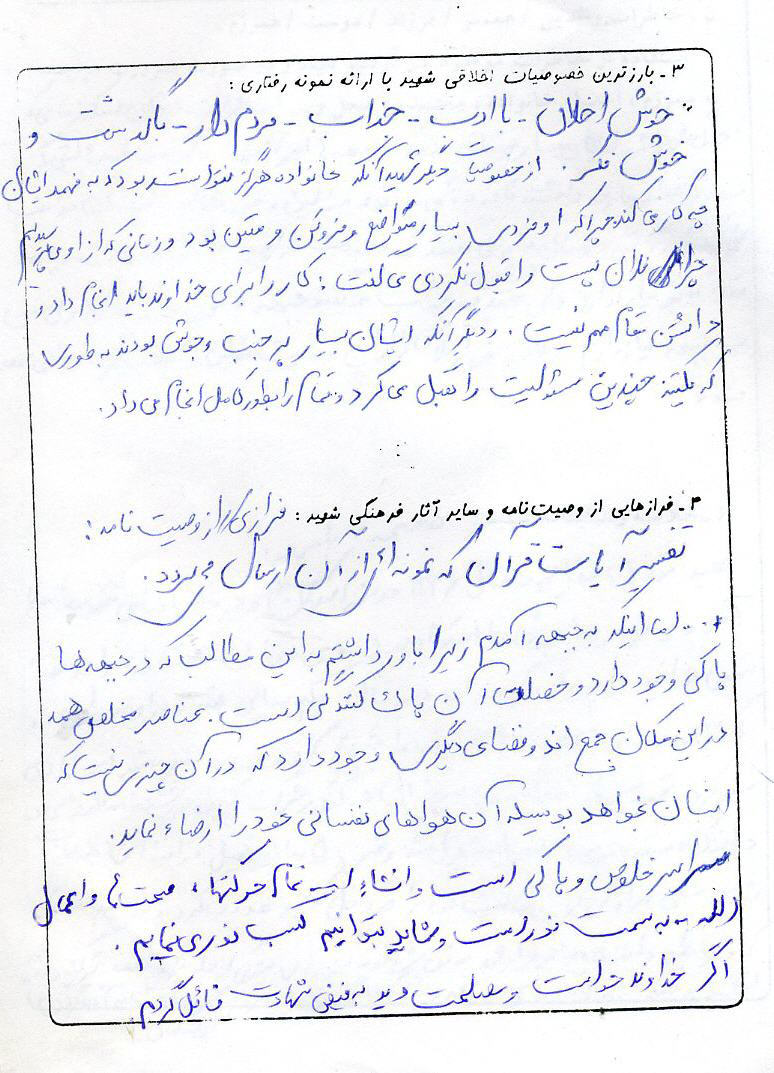 ۳ـ بارزترین خصوصیات اخلاقی شهید با ارائه نمونه رفتاری :
خوش اخلاق - با ادب - جذاب - مردم دار - با گذشت و
خوش فکر . از خصوصیات دیگر شهید آنکه خانواده هرگز نتوانسته بود که بفهمد ایشان
چه کار می کند چرا که او فردی بسیار متواضع و فروتن و متین بود و زمانی که از او می پرسیدیم
چرا فلان پست را قبول نکردی می گفت : کار را برای خداوند باید انجام داد و
داشتن مقام مهم نیست . و دیگر آنکه ایشان بسیار پر جنب و جوش بودند به طوری
که یکتنه چندین مسئولیت را تقبل می کرد و تمام را بطور کامل انجام می داد .
۴ـ فرازهایی از وصیت‌نامه و سایر آثار فرهنگی شهید : فرازی از وصیت نامه :
تفسیر آیات قرآن که نمونه ای از آن ارسال می گردد .
... اما اینکه به جبهه آمدم زیرا باور داشتم به این مطالب که در جبهه ها
پاکی وجود دارد و خصلت آن پاک کنندگی است . عناصر مخلص همه
در این مکان جمع اند و فضای دیگری وجود دارد که در آن چیزی نیست که
انسان بخواهد بوسیله آن هواهای نفسانی خود را ارضاء نماید .
سراسر خلوص و پاکی است و انشاءالله تمام حرکتها ، صحبتها و اعمال
به سمت نور است و شاید بتوانیم کسب نوری نماییم .
اگر خداوند خواست و مصلحت دید به فیض شهادت نائل گردم .